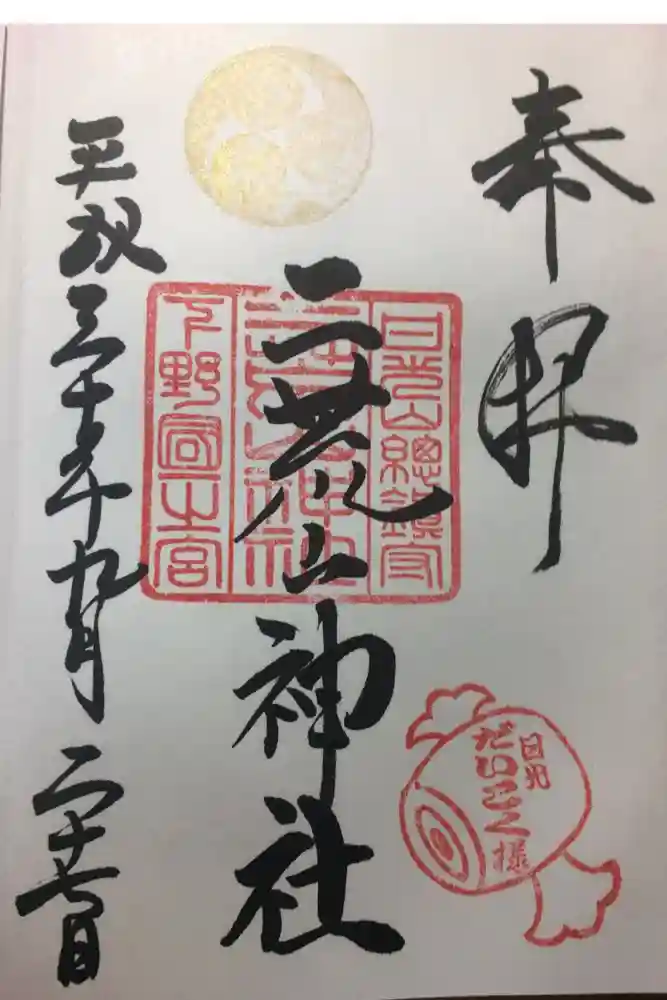 奉拝
日光山總鎮守
二荒山神社
二荒山神社
下野國一之宮
平成三十年九月二十七日
日光
だいこく様